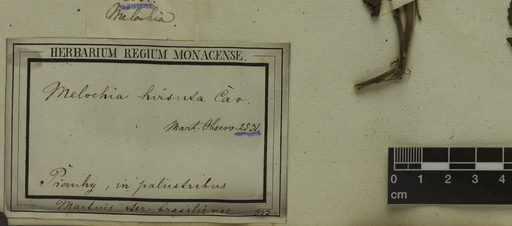 Melochia.
HERBARIUM REGIUM MONACENSE.
Melochia hirsuta Cav.
Mart. Observ. 2531
Piauhy, in palustribus
Martius iter brasiliense
0 1 2 3 4
cm